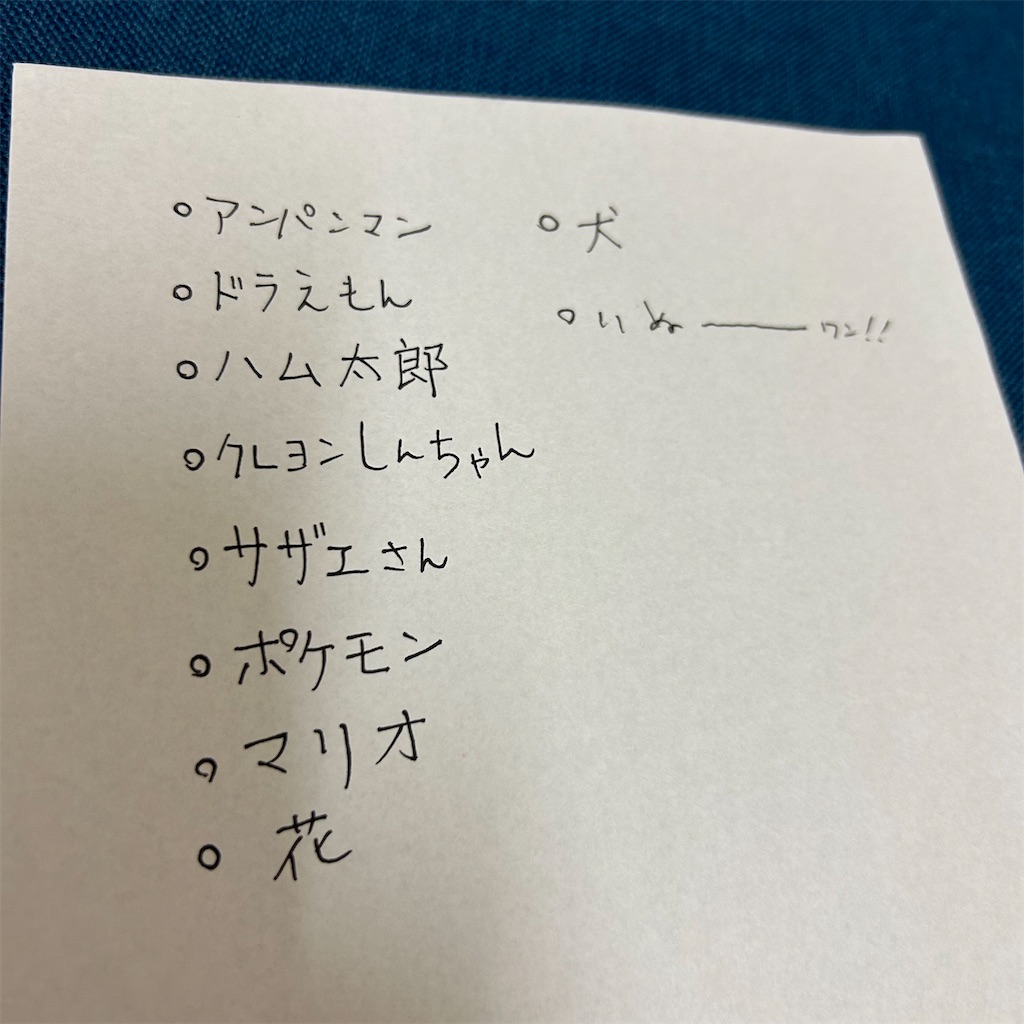 ○アンパンマン
○ドラえもん
○ハム太郎
○クレヨンしんちゃん
○サザエさん
○ポケモン
○マリオ
○花
○犬
○いぬ――ワン!!